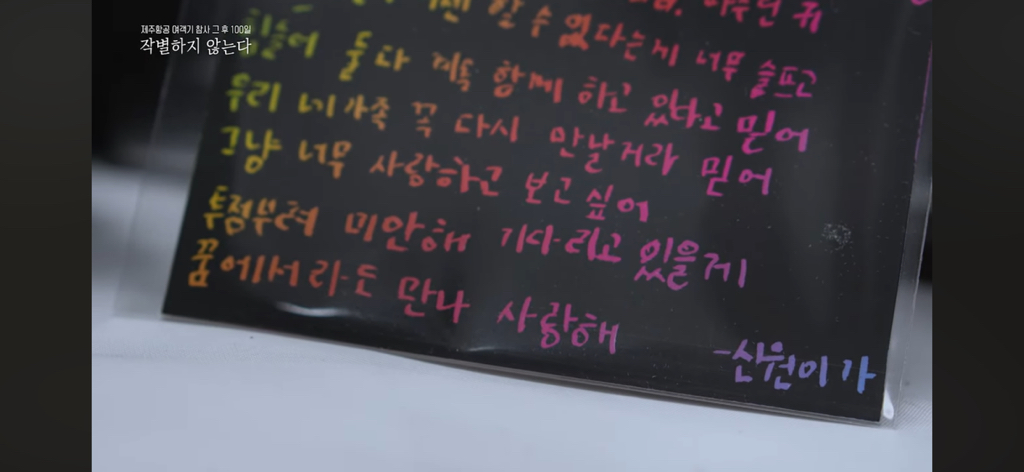 제주항공 여객기 참사 그 후 100일
작별하지 않는다
할 수 없다는게 너무 슬프고
둘 다 계속 함께 하고 있다고 믿어
우리 네가족 꼭 다시 만날거라 믿어
그냥 너무 사랑하고 보고싶어
투정부려 미안해 기다리고 있을게
꿈에서라도 만나 사랑해
-산원이가